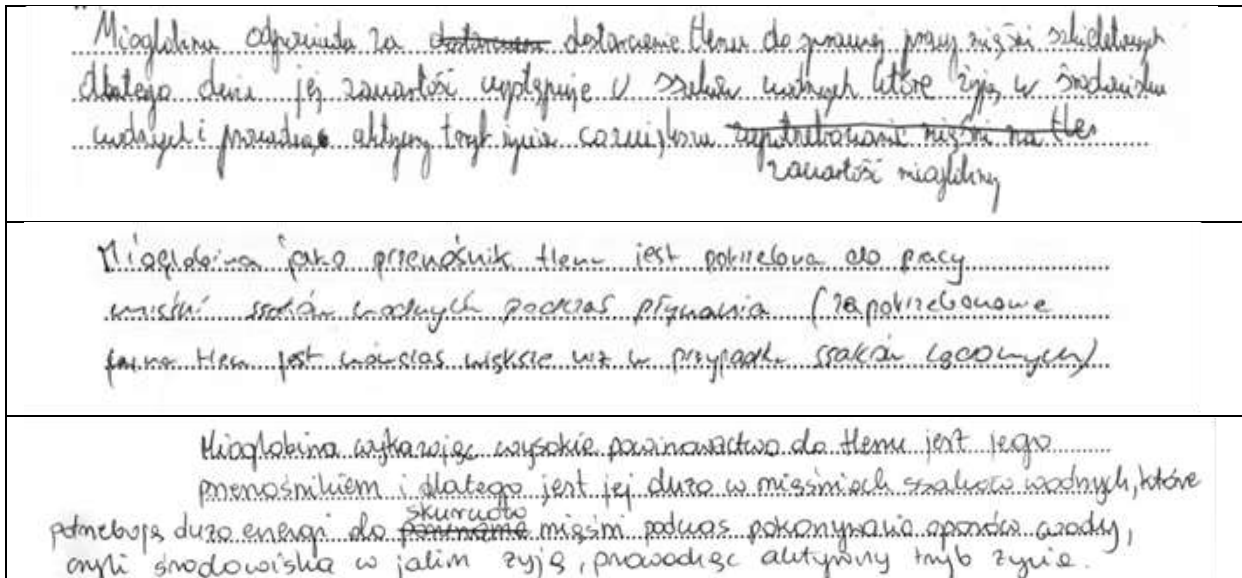 Mioglobina odpowiada za dostarczenie tlenu do sprawnej pracy mięśni szkieletowych
dlatego duża jej zawartość występuje u ssaków wodnych które żyją w środowisku
wodnych i prowadzą aktywny tryb życia zapotrzebowanie mięśni na tlen
zawartość mioglobiny
Mioglobina jako przenośnik tlenu jest potrzebna do pracy
mięśni ssaków wodnych podczas pływania (zapotrzebowanie
na tlen jest wówczas większe niż w przypadku ssaków lądowych)
Mioglobina wykazując wysokie powinowactwo do tlenu jest jego
przenośnikiem i dlatego jest jej dużo w mięśniach ssaków wodnych, które
skurczów
potrzebują dużo energi do mięśni podczas pokonywania oporów wody,
czyli środowiska w jakim żyją, prowadząc aktywny tryb życie.